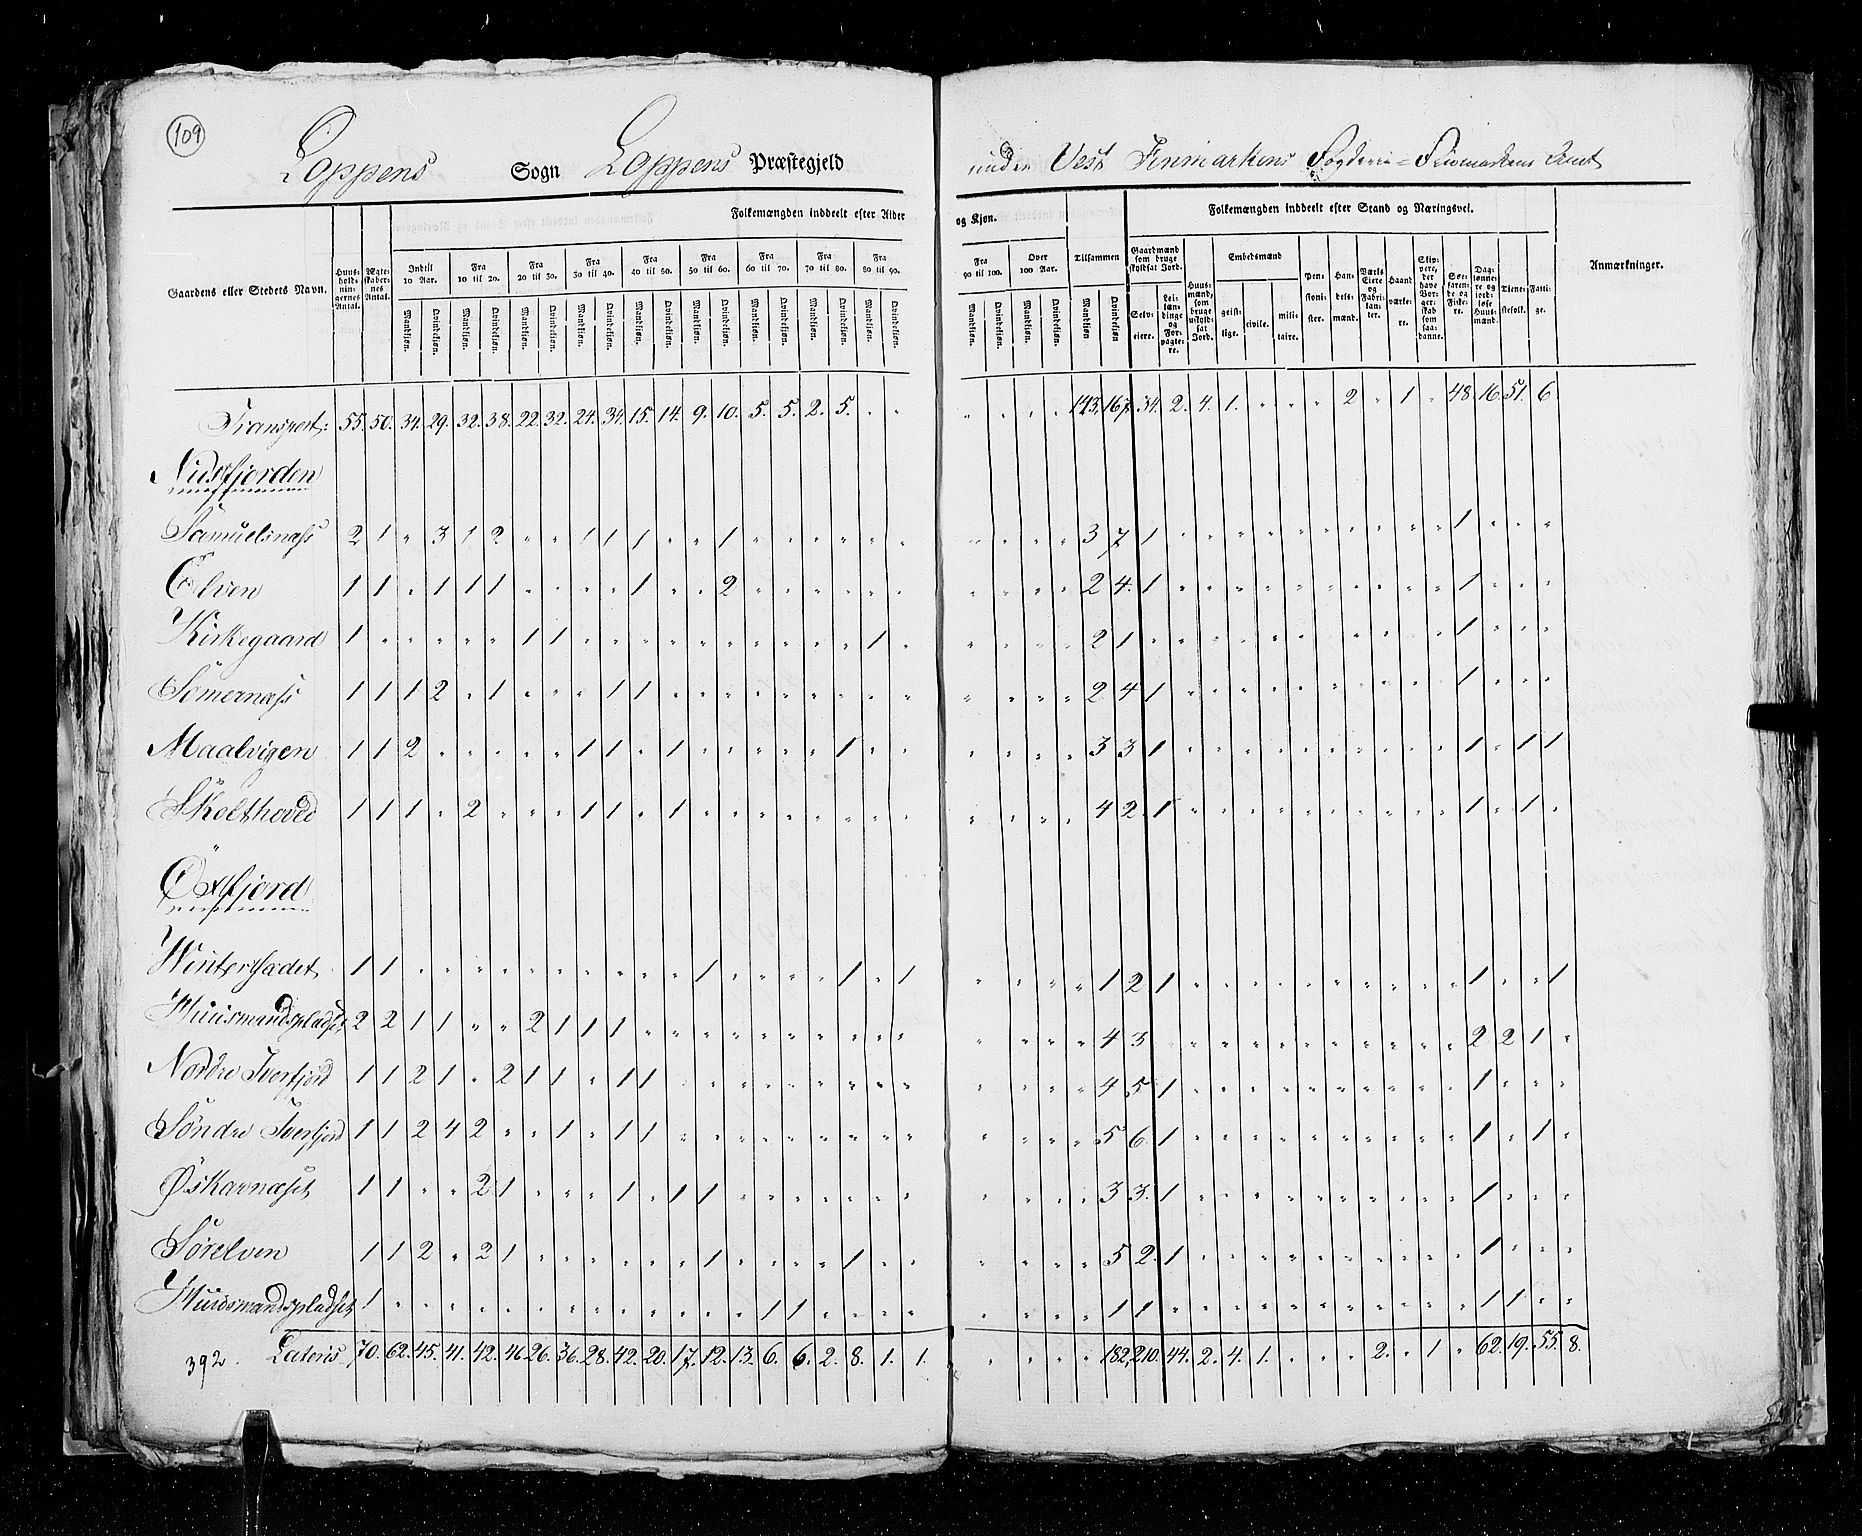 109
Loppens Sogn Loppens Præstegjeld under Vest Finmarkens Fogderie = Finmarkens Amt
Gaardens eller Stedets Navn. Huusholdningernes Antal. Ægteskabernes Antal. Folkemængden inddeelt efter Alder og Kjøn. Tilsammen Folkemængden inddeelt efter Stand og Næringsvei. Anmærkninger.
Indtil 10 Aar. Fra 10 til 20. Fra 20 til 30. Fra 30 til 40. Fra 40 til 50. Fra 50 til 60. Fra 60 til 70. Fra 70 til 80. Fra 80 til 90. Fra 90 til 100. Over 100 Aar.
Gaardmænd som bruge skyldsat Jord. Huusmænd, som bruge uskyldsat Jord. Embedsmænd Pensionister. Handelsmænd. Værks Eiere og Fabrikanter. Haandværkere. Stipvere, der have Borgerskab som saadanne. Søefarende og Fiskere. Daglønnere og jordløse Huusmænd. Tienestefolk. Fattige.
Mandkjøn. Qvindekjøn. Mandkjøn. Qvindekjøn. Mandkjøn. Qvindekjøn. Mandkjøn. Qvindekjøn. Mandkjøn. Qvindekjøn. Mandkjøn. Qvindekjøn. Mandkjøn. Qvindekjøn. Mandkjøn. Qvindekjøn. Mandkjøn. Qvindekjøn. Mandkjøn. Qvindekjøn. Mandkjøn. Qvindekjøn. Mandkjøn Qvindekjøn Selveiere. Leilændinge og Forpagtere. geistlige. civile. militaire.
Transport: 55. 50. 34. 29. 32. 38. 22. 32. 24. 34. 15. 14. 9. 10. 5. 5. 2. 5. " " " " " " 143. 167. 34. 2. 4. 1. " " " 2 " 1 " 48. 16. 51. 6
Nusfjorden
Samuelsnæss 2 1 " 3 1 2 " " 1 1 1 " " 1 " " " " " " " " " " 3 7 1 " " " " " " " " " " 1 " " "
Elven 1 1 " 1 1 1 " " " " 1 " " 2 " " " " " " " " " " 2 4. 1 " " " " " " " " " " 1 " " "
Kirkegaard 1 " " " " " 1 1 " " " " " " " " " " 1 " " " " " 2 1 " " " " " " " " " " " 1 " " "
Somernæss 1 1 1 2 " 1 " " " 1 1 " " " " " " " " " " " " " 2 4 1 " " " " " " " " " " 1 " " "
Maalvigen 1 1 2 " " " " " 1 1 " 1 " " " " " 1 " " " " " " 3 3 1 " " " " " " " " " " 1 " 1 1
Skolthoved 1 1 1 " 2 " " " 1 1 " 1 " " " " " " " " " " " " 4 2. 1 " " " " " " " " " " 1 " 1 "
Öxfjord
Wintersadet 1 1 " " " " " " " " " " 1 " " " " 1 " 1 " " " " 1 2 1 " " " " " " " " " " 1 " " 1
Huusmandspladset 2 2 1 1 " " 2 1 1 1 " " " " " " " " " " " " " " 4 3 " " " " " " " " " " " 2 2 1 "
Nordre Tverfjord 1 1 2 1 " 2 1 1 " 1 1 " " " " " " " " " " " " " 4 5 1 " " " " " " " " " " 1 " " "
Søndre Tverfjord 1 1 2 4 2 " " 1 " 1 1 " " " " " " " " " " " " " 5 6 1 " " " " " " " " " " 1 " 1 "
Øskarnæset 1 1 " " 2 1 " " " 1 " 1 1 " " " " " " " " " " " 3 3. 1 " " " " " " " " " " 1 " " "
Sörelven 1 1 2 " 2 1 " " " " " " 1 " " " " 1 " " " " " " 5 2. 1 " " " " " " " " " " 1 " " "
Huusmandspladset 1 " " " " " " " " " " " " " 1 1 " " " " " " " " 1 1 " " " " " " " " " " " 1 1 " "
392. Lateris 70. 62. 45. 41. 42. 46 26. 36. 28. 42. 20. 17. 12. 13. 6. 6. 2. 8. 1. 1. " " " " 182. 210. 44. 2. 4. 1. " " " 2. " 1 " 62. 19. 55. 8.